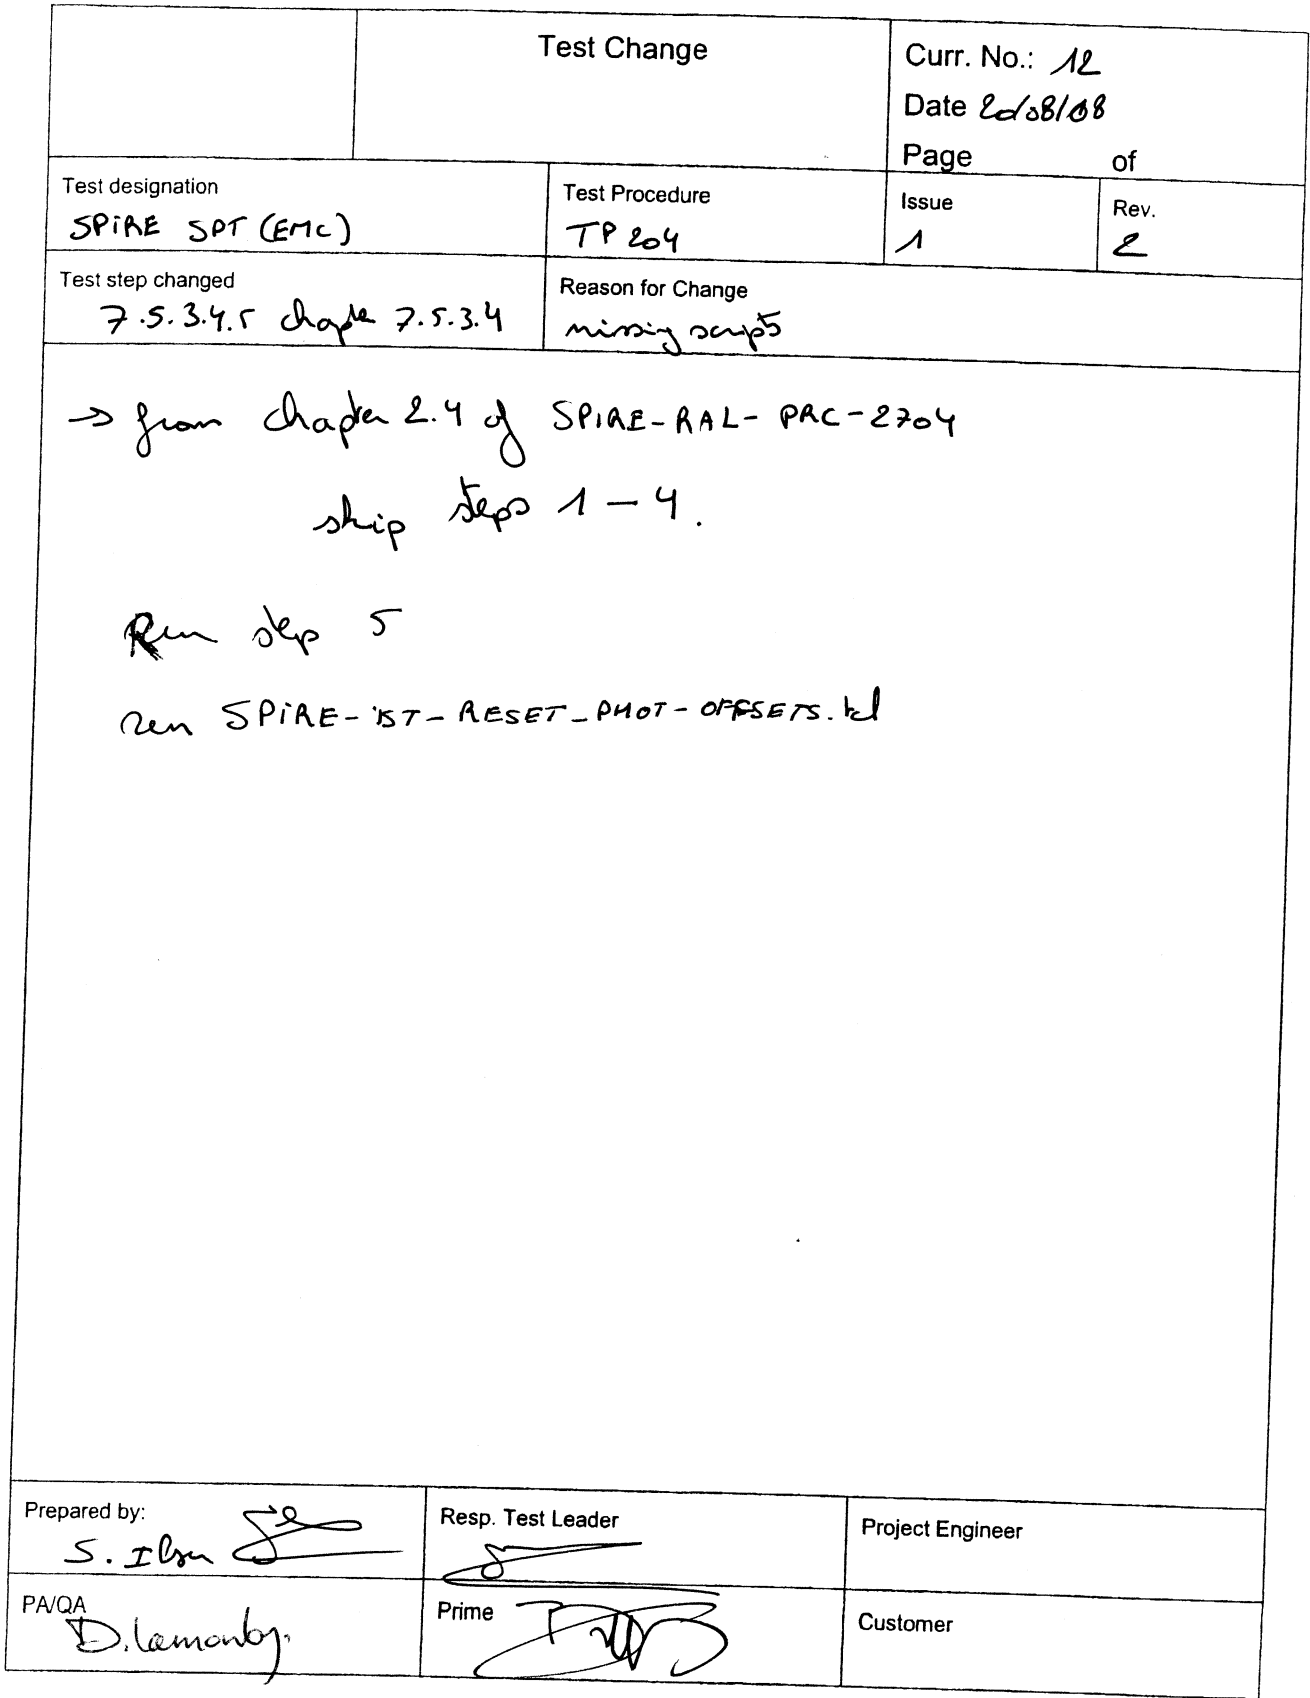 Test Change
Curr. No.: 12
Date 20/08/08
Page of
Test designation
SPIRE SPT (EMC)
Test Procedure
TP 204
Issue
1
Rev.
2
Test step changed
7.5.3.4.5 chapter 7.5.3.4
Reason for Change
missing scripts
→ from chapter 2.4 of SPIRE-RAL-PRC-2704
skip steps 1-4.
Run step 5
run SPIRE-IST-RESET_PHOT-OFFSETS.tcl
Prepared by:
S.
Resp. Test Leader
Project Engineer
PA/QA
D. Lamonby
Prime
Customer